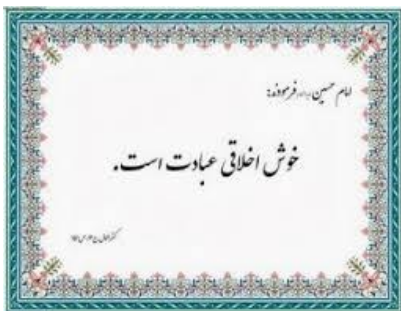 امام حسین فرمودند:
خوش اخلاقی عبادت است.